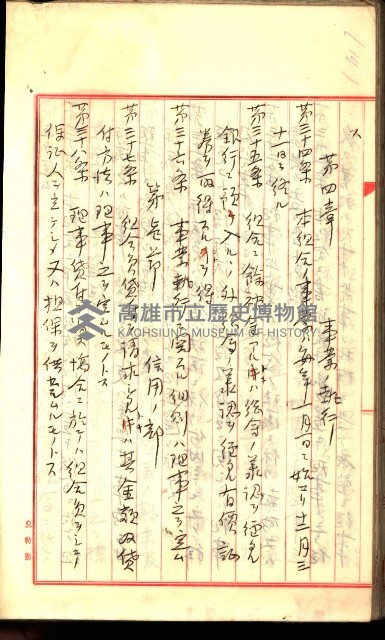 第四章　事業ノ執行
第三十四条　本組合ノ事業年度ハ毎年一月一日ニ始マリ十二月三
十一日ニ終ル
第三十五条　組合ニ餘裕金アル時ハ総会ノ義認ヲ経テ
銀行ニ預ケ入ルノ外　義認ヲ経テ有價証
券ヲ買得スルコトヲ得
第三十六条　事業執行ニ関スル細則ハ理事之ヲ定ム
第一節　信用ノ部
第三十七条　組合員貸付ノ請求ヲ時ハ其金額及貸
付方法ハ理事之ヲ定ムルモノトス
第三十八条　理事貸付ノ場合ニ於テハ組合員ヲシテ
保証人ヲ立テシメ又ハ担保ヲ供セシムルモノトス
高雄市立歷史博物館
KAOHSIUNG MUSEUM OF HISTORY